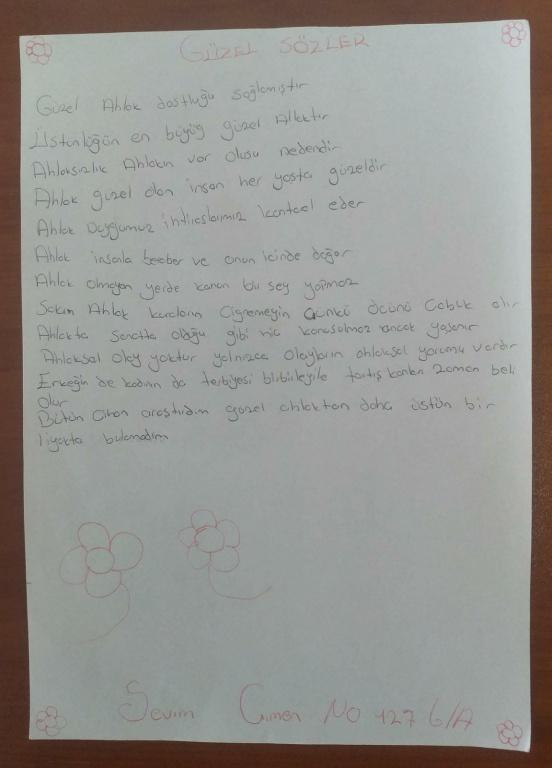 GÜZEL SÖZLER
Güzel Ahlak dostluğu sağlamıştır
Üstünlüğün en büyüğ güzel Ahlaktır
Ahlaksızlık Ahlakın var olusu nedendir
Ahlak güzel olan insan her yaşta güzeldir
Ahlak Duygumuz ihtiraslarımız kontrol eder
Ahlak insanla beraber ve onun içinde doğar
Ahlak olmayan yerde kanun bir şey yapmaz
Sakın Ahlak kuralların Çiğnemeyin Çünkü öcünü Çabuk alır
Ahlakta Sanatta olduğu gibi hiç konuşulmaz ancak yaşanır
Ahlaksal olay yoktur yalnızca olayların ahlaksal yorumu vardır
Erkeğin de kadının da terbiyesi tartış zaman beli
olur
Bütün Cihan araştırdım güzel ahlaktan daha üstün bir
liyakta bulamadım
Sevim Çimen No 127 6/A